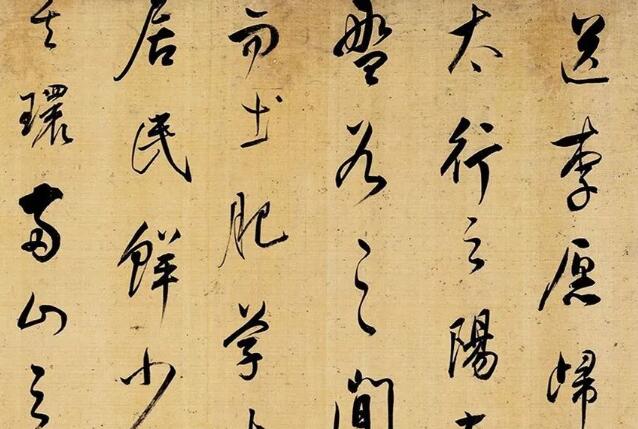 送李愿歸
太行之陽有
盤谷之間
而土肥草
居民鮮少
其環兩山之